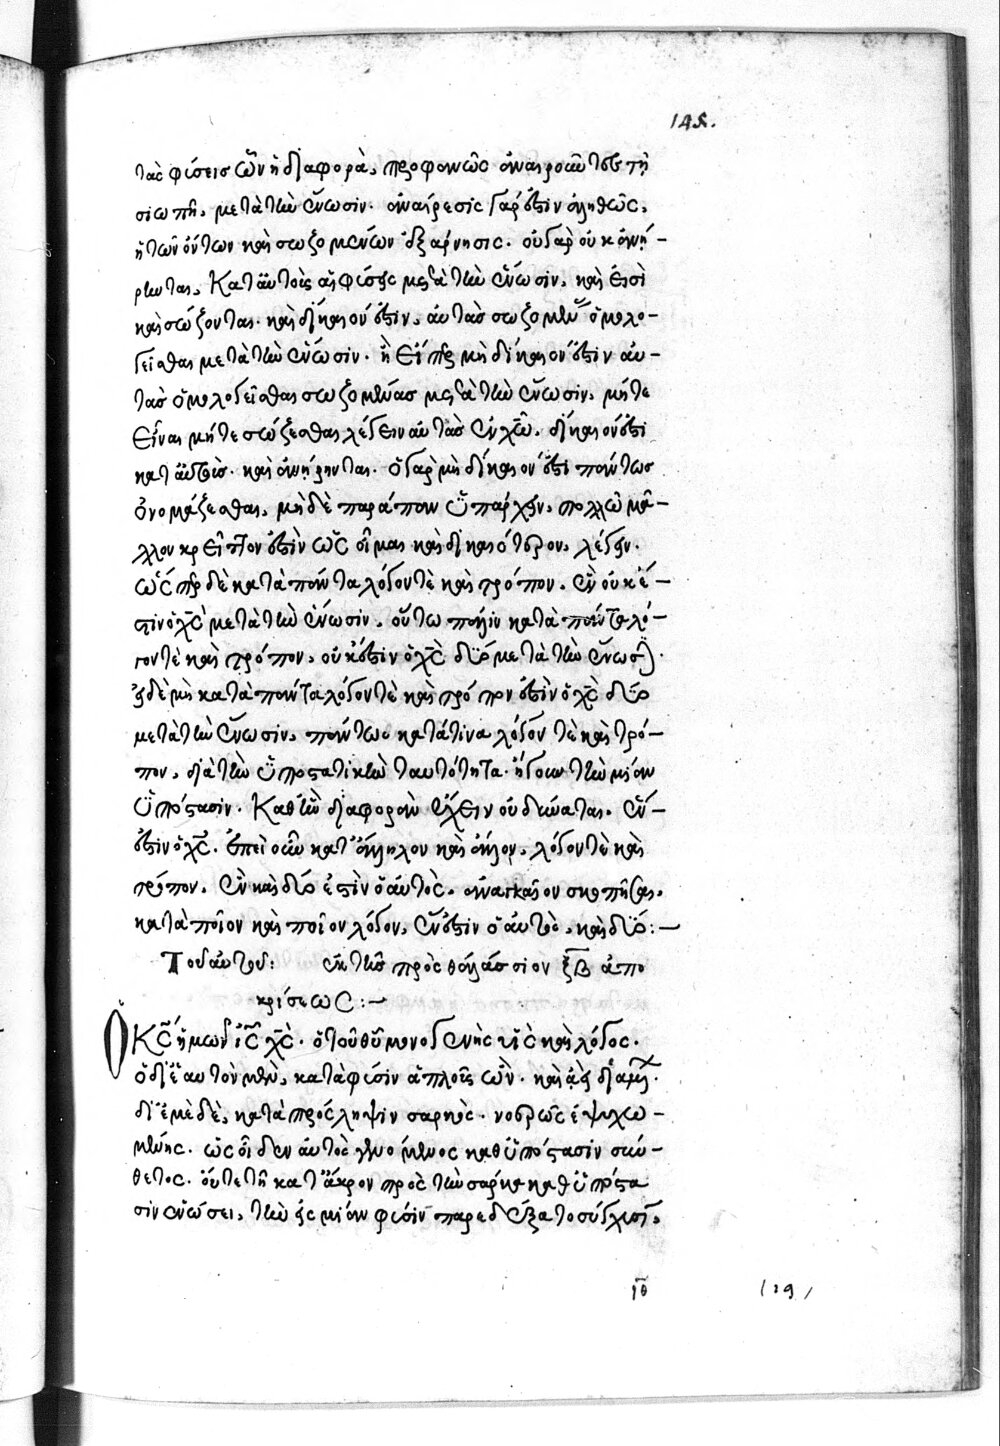 145.
τὰς φύσεις ὧν ἡ διαφορὰ, προφανῶς ἀναιροῦντος τῇ
σιωπῇ, μετὰ τὴν ἕνωσιν. ἀναίρεσις γάρ ἐστιν ἀληθῶς,
ἡ τῶν ὄντων καὶ σωζομένων ἐξάρνησις. οὐ γὰρ οὐκ ἀνῄ-
ρηνται, κατ' αὐτοὺς αἱ φύσεις μετὰ τὴν ἕνωσιν, καὶ εἰσὶ
καὶ σώζονται. καὶ δίκαιον ἐστιν, αὐτὰς σωζομένας ὁμολο-
γεῖσθαι μετὰ τὴν ἕνωσιν. ἢ εἴπερ μὴ δίκαιον ἐστιν αὐ-
τὰς ὁμολογεῖσθαι σωζομένας μετὰ τὴν ἕνωσιν, μήτε
εἶναι μήτε σώζεσθαι λέγειν αὐτὰς ἐν χῶ, δίκαιον ἐστι
κατ' αὐτοὺς. καὶ ἀνῄρηνται. ὃ γὰρ μὴ δίκαιον ἐστι πάντως
ὀνομάζεσθαι, μὴ δὲ παράπαν ὑπάρχειν, πολλῷ μᾶ-
λλον κρεῖττον ἐστὶν ὡς οἶμαι καὶ δικαιότερον, λέγειν.
ὥσπερ δὲ κατὰ πάντα λόγον τὲ καὶ τρόπον, ἓν οὐκ ἔ-
στιν ὁ χς μετὰ τὴν ἕνωσιν, οὕτω πάλιν κατὰ πάντα λό-
γον τὲ καὶ τρόπον, οὐκ ἐστὶν ὁ χς δύο μετὰ τὴν ἕνωσιν.
εἰ δὲ μὴ κατὰ πάντα λόγον τὲ καὶ τρόπον ἐστὶν ὁ χς δύο
μετὰ τὴν ἕνωσιν, πάντως κατά τινα λόγον τὲ καὶ τρό-
πον, διὰ τὴν ὑποστατικὴν ταυτότητα. ἤγουν τὴν μίαν
ὑπόστασιν. καθ' ἣν διαφορὰν ἔχειν οὐ δύναται, ἕν
ἐστιν ὁ χς. ἐπεὶ οὖν κατ' ἄλλον καὶ ἄλλον, λόγον τὲ καὶ
τρόπον, ἓν καὶ δύο ἐστὶν ὁ αὐτὸς, ἀναγκαῖον σκοπῆσαι,
κατὰ ποῖον καὶ ποῖον λόγον, ἕν ἐστιν ὁ αὐτὸς, καὶ δύο:—
Τοῦ αὐτοῦ: ἐκ τῆς πρὸς θαλάσσιον ξβ ἀπο
κρίσεως:—
Ὁ κς ἡμῶν ις χς. ὁ τοῦ θυ μονογενὴς υς καὶ λόγος.
ὁ δι' ἑαυτὸν μὲν, κατὰ φύσιν ἁπλοῦς ὢν. καὶ
δι' ἐμὲ δὲ, κατὰ πρόσληψιν σαρκὸς. νοερῶς ἐψυχω-
μένης. ὡς οἶδεν αὐτὸς γενόμενος καθ' ὑπόστασιν σύν-
θετος. οὔτε τῇ κατ' ἄκρον πρὸς τὴν σάρκα καθ' ὑπόστα
σιν ἑνώσει, τὴν εἰς μίαν φύσιν παρεδέξατο σύγχυσιν,
ιθ (19)